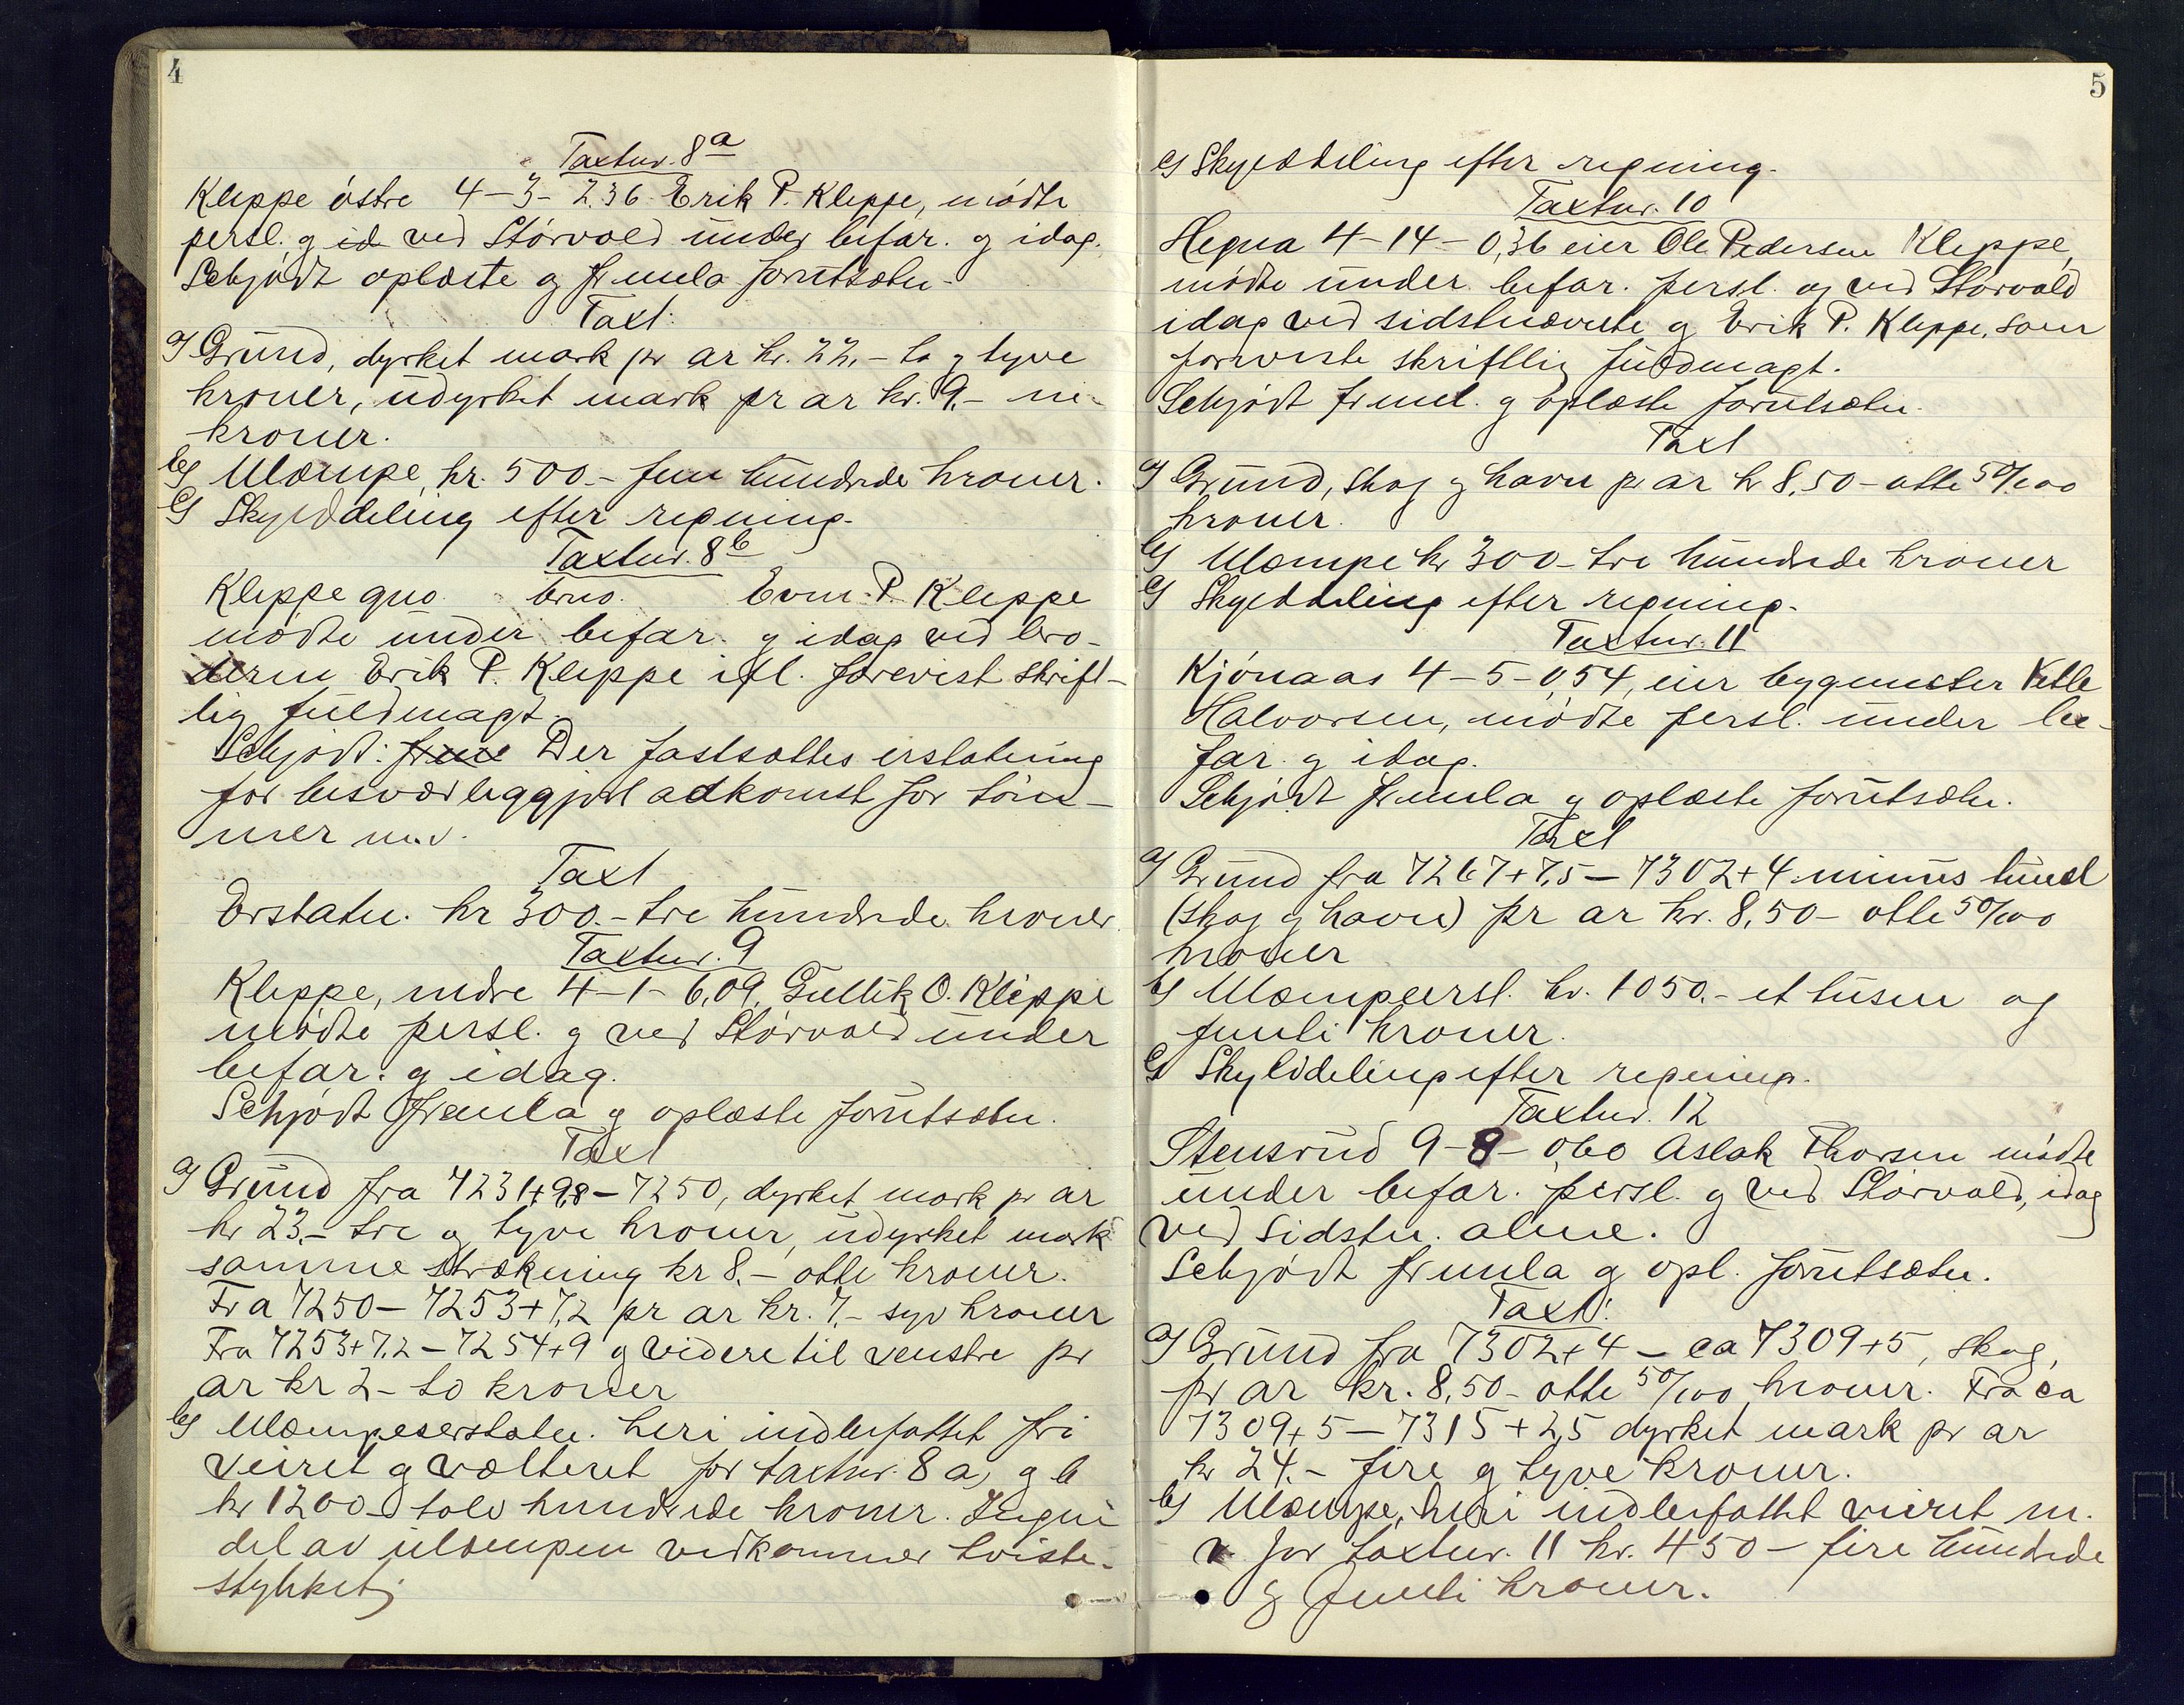 4
Taxtnr. 8a
Kleppe østre 4-3-2.36 Erik P. Kleppe, mødte
persl. og id ved Størvold under befar. og idag.
Schjødt oplæste og fremla forutsætn.
Taxt:
a) Grund, dyrket mark pr ar kr. 22,- to og tyve
kroner, udyrket mark pr ar kr. 9,- ni
kroner.
b) Ulæmpe, kr. 500.- fem hundrede kroner.
c) Skylddeling efter regning.
Taxtnr. 8b
Kleppe gno. brno. Even P. Kleppe
mødte under befar. og idag ved bro-
deren Erik P. Kleppe ifl. forevist skrift-
lig fuldmagt.
Schjødt: frem Der fastsattes erstatning
for besværliggjort adkomst for tøm-
mer m.v.
Taxt
Erstatn. kr 300.- tre hundrede kroner.
Taxtnr. 9
Kleppe, nedre 4-1-6,09, Gullik O. Kleppe
mødte persl. og ved Størvold under
befar. og idag.
Schjødt fremla og oplæste forutsætn.
Taxt
a) Grund fra 7231+9,8-7250, dyrket mark pr ar
kr 23,- tre og tyve kroner, udyrket mark
samme strækning kr 8,- otte kroner.
Fra 7250-7253+7,2 pr ar kr. 7,- syv kroner
Fra 7253+7.2-7254+9 og videre til venstre pr
ar kr 2- to kroner
b) Ulæmpeserstatn. heri indbefattet fri
veiret og vælteret for taxtnr. 8 a) og b
kr 1200- tolv hundrede kroner. Ingen
del av ulæmpen vedkommer tviste-
stykket.
5
c) Skylddeling efter regning.
Taxtnr. 10
Hegna 4-14-0,36 eier Ole Pedersen Kleppe,
mødte under befar. persl. og ved Størvold
idag ved sidstnævnte og Erik P. Kleppe, som
foreviste skriftlig fuldmagt.
Schjødt freml. og oplæste forutsætn.
Taxt
a) Grund, skog og havn pr ar kr 8,50- otte 50/100
kroner.
b) Ulæmpe kr 300- tre hundrede kroner
c) Skylddeling efter regning.
Taxtnr. 11
Kjønaas 4-5-0,54, eier bygmester Ketle
Halvorsen, mødte persl. under be-
far. og idag.
Schjødt fremla og oplæste forutsætn.
Taxt
a) Grund fra 7267+7,5-7302+4 minus tunel
(skog og havn) pr ar kr. 8,50- otte 50/100
kroner
b) Ulæmpeerst. kr. 1050.- et tusen og
femti kroner.
c) Skylddeling efter regning.
Taxtnr. 12
Stensrud 9-8-0,60 Aslak Thorsen mødte
under befar. persl. og ved Størvold, idag
ved sidstn. alene.
Schjødt fremla og opl. forutsætn.
Taxt:
a) Grund fra 7302+4 - ca 7309+5, skog,
pr ar kr. 8,50- otte 50/100 kroner. Fra ca
7309+5-7315+2,5 dyrket mark pr ar
kr 24.- fire og tyve kroner.
b) Ulæmpe, heri indbefattet veiret m.
v for taxtnr. 11 kr. 450- fire hundrede
og femti kroner.